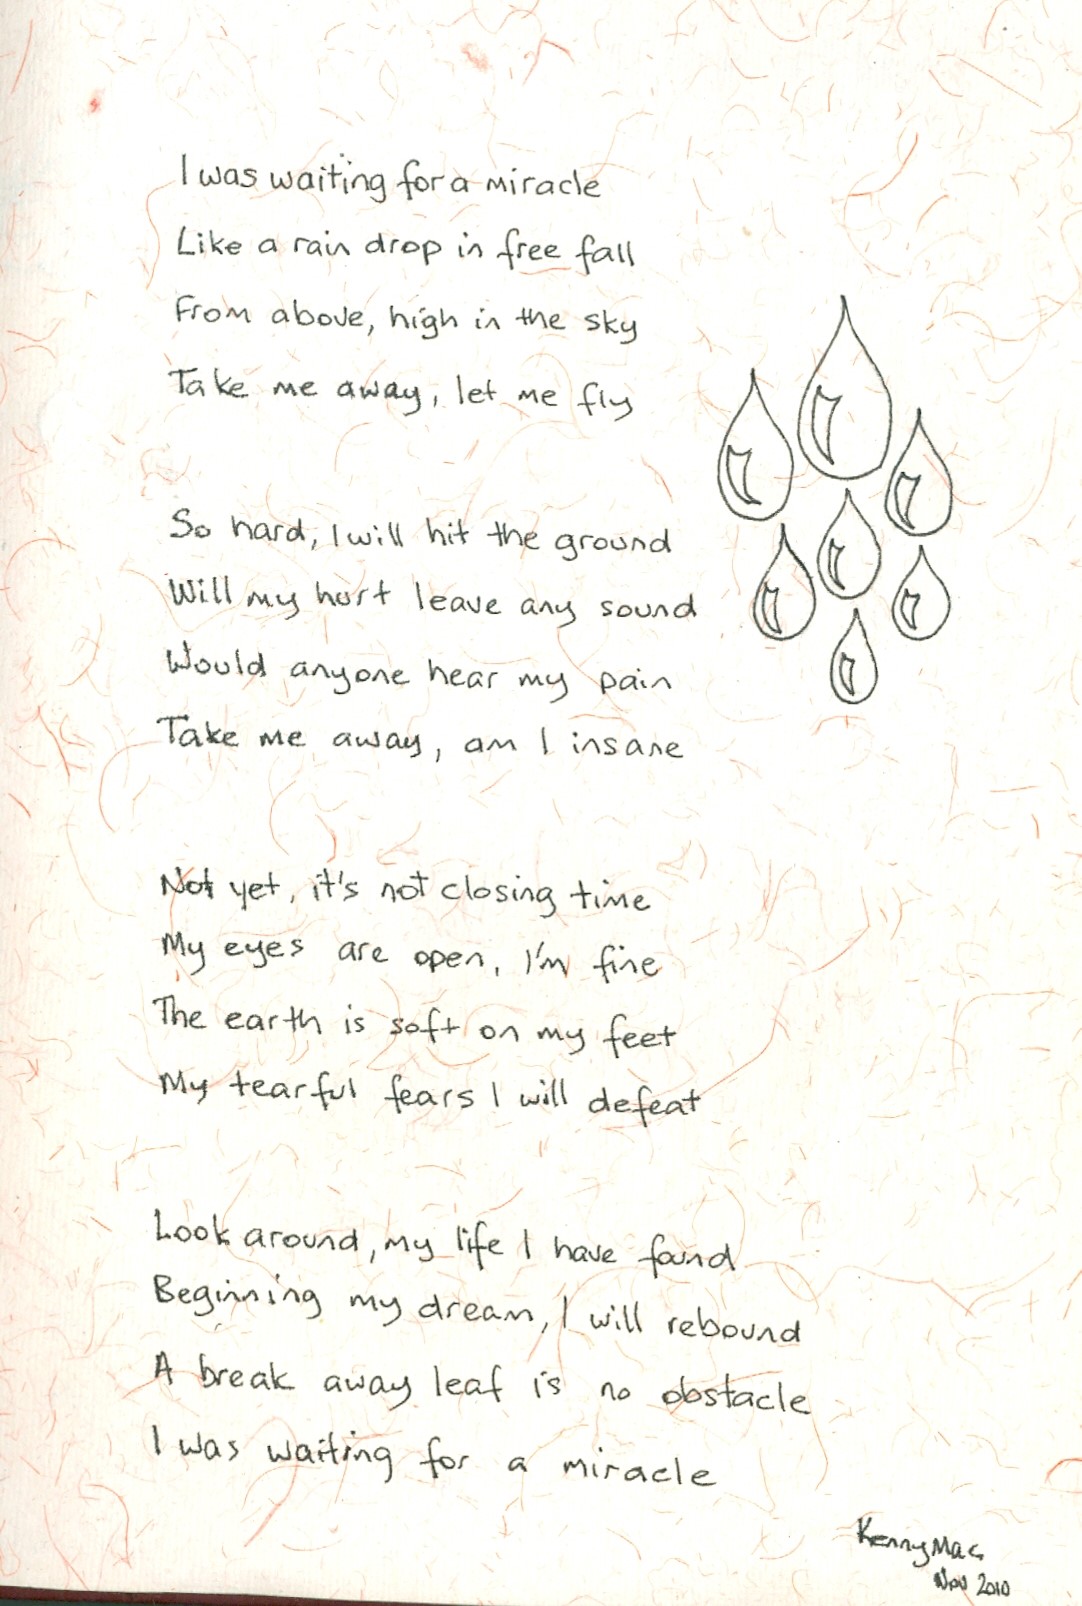 I was waiting for a miracle
Like a rain drop in free fall
From above, high in the sky
Take me away, let me fly
So hard, I will hit the ground
Will my hurt leave any sound
Would anyone hear my pain
Take me away, am I insane
Not yet, it's not closing time
My eyes are open, I'm fine
The earth is soft on my feet
My tearful fears I will defeat
Look around, my life I have found
Beginning my dream, I will rebound
A break away leaf is no obstacle
I was waiting for a miracle
KennyMac
Nov 2010